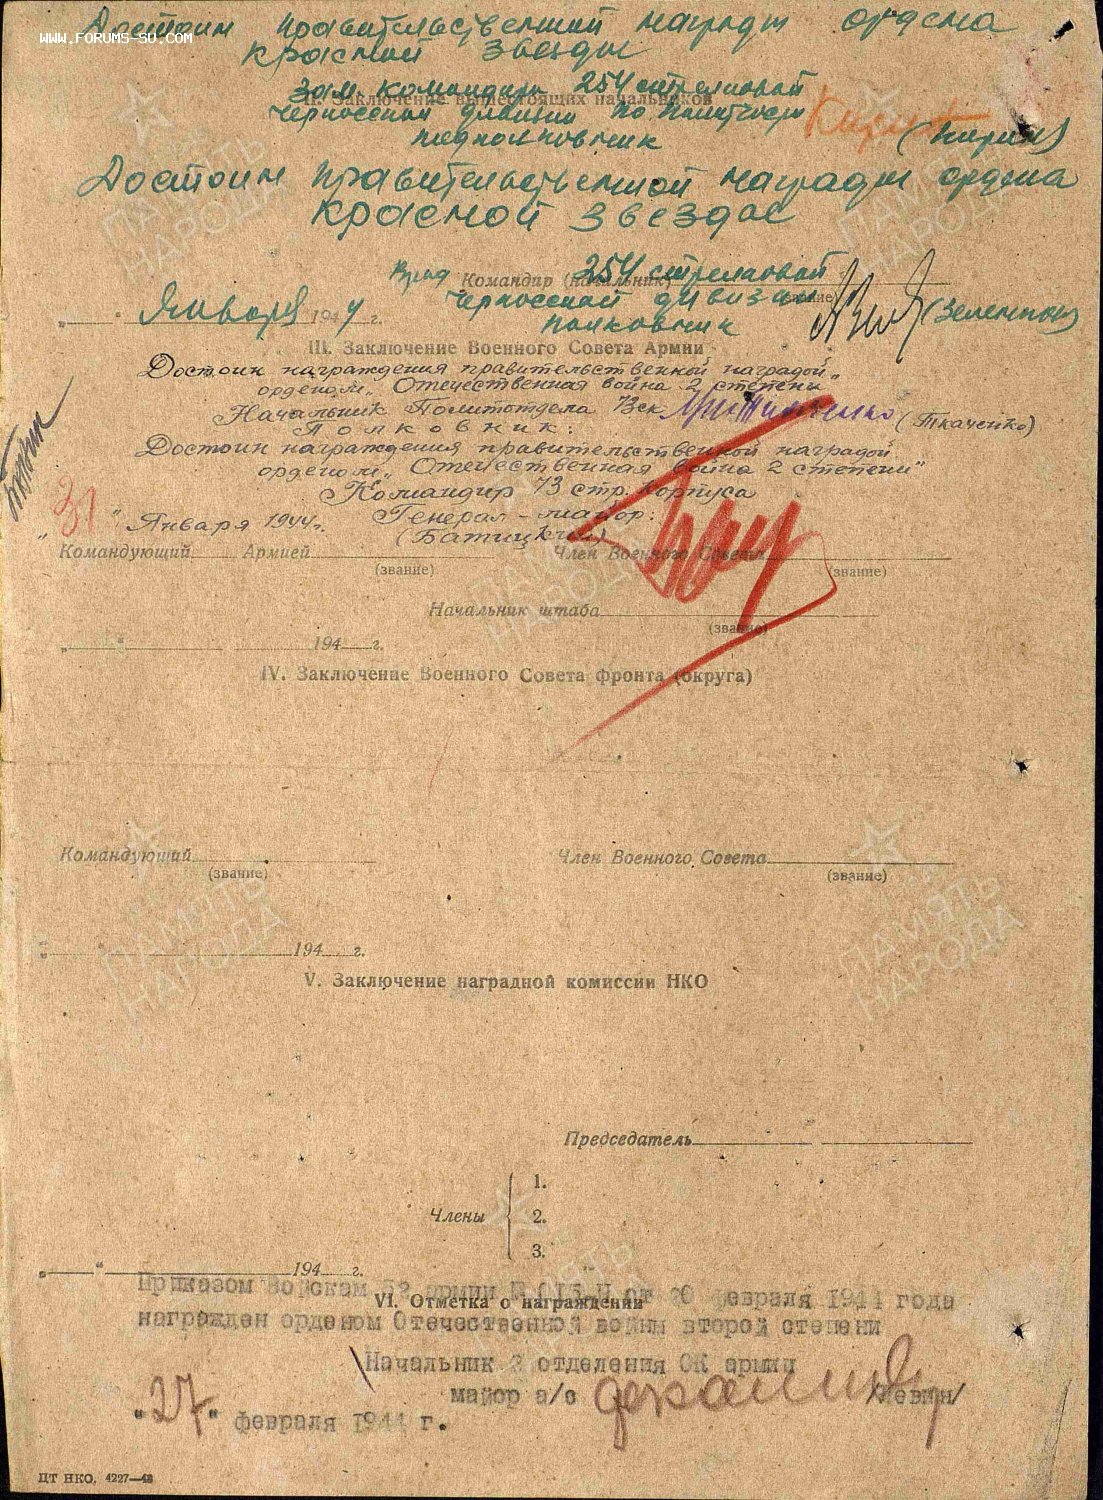 Достоин правительственной награды ордена
www.forums-su.com
Красной Звезды
Зам. командира 254 стрелковой
II. Заключение вышестоящих начальников
Черкасской дивизии по политчасти
подполковник
Достоин правительственной награды ордена
Красной Звезды
Врид Командир (начальник) 254 стрелковой
(звание)
Черкасской дивизии
полковник
"Января 1944 г.
III. Заключение Военного Совета Армии
Достоин награждения правительственной наградой
орденом „Отечественная война 2 степени
Начальник Политотдела 73ск (Ткаченко)
Полковник:
Достоин награждения правительственной наградой
орденом „Отечественная война 2 степени"
Командир 73 стр. Корпуса
Генерал-майор:
31 " Января 1944г.
(Батицкий)
Командующий Армией Член Военного Совета
(звание) (звание)
Начальник штаба
(звание)
" " 194 г.
IV. Заключение Военного Совета фронта (округа)
Командующий Член Военного Совета
(звание) (звание)
" " 194 г.
V. Заключение наградной комиссии НКО
Председатель
1.
Члены 2.
3.
" " 194 г.
Приказом Войскам армии от февраля 1944 года
VI. Отметка о награждении
награжден орденом Отечественной войны второй степени
Начальник отделения ОК армии
майор а/с /Левин/
"27" февраля 1944 г.
ЦТ НКО. 4227—43
ПАМЯТЬ
НАРОДА
ПАМЯТЬ
НАРОДА
ПАМЯТЬ
НАРОДА
ПАМЯТЬ
НАРОДА
ПАМЯТЬ
НАРОДА
ПАМЯТЬ
НАРОДА